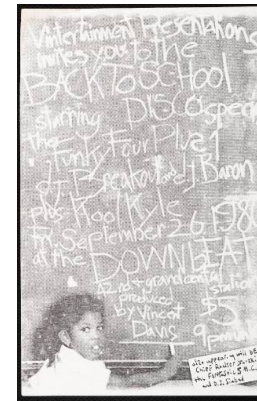 Vintertainment Presentations
invites you to the
BACK TO SCHOOL
DISCO
starring
the Funky Four Plus 1
DJ Breakout and DJ Baron
plus Kool Kyle
Fri. September 26, 1980
at the DOWNBEAT
42nd + grand central station
produced
by Vincent
Davis
$5
9pm
also appearing will be
Chief Rocker
the
and D.J.